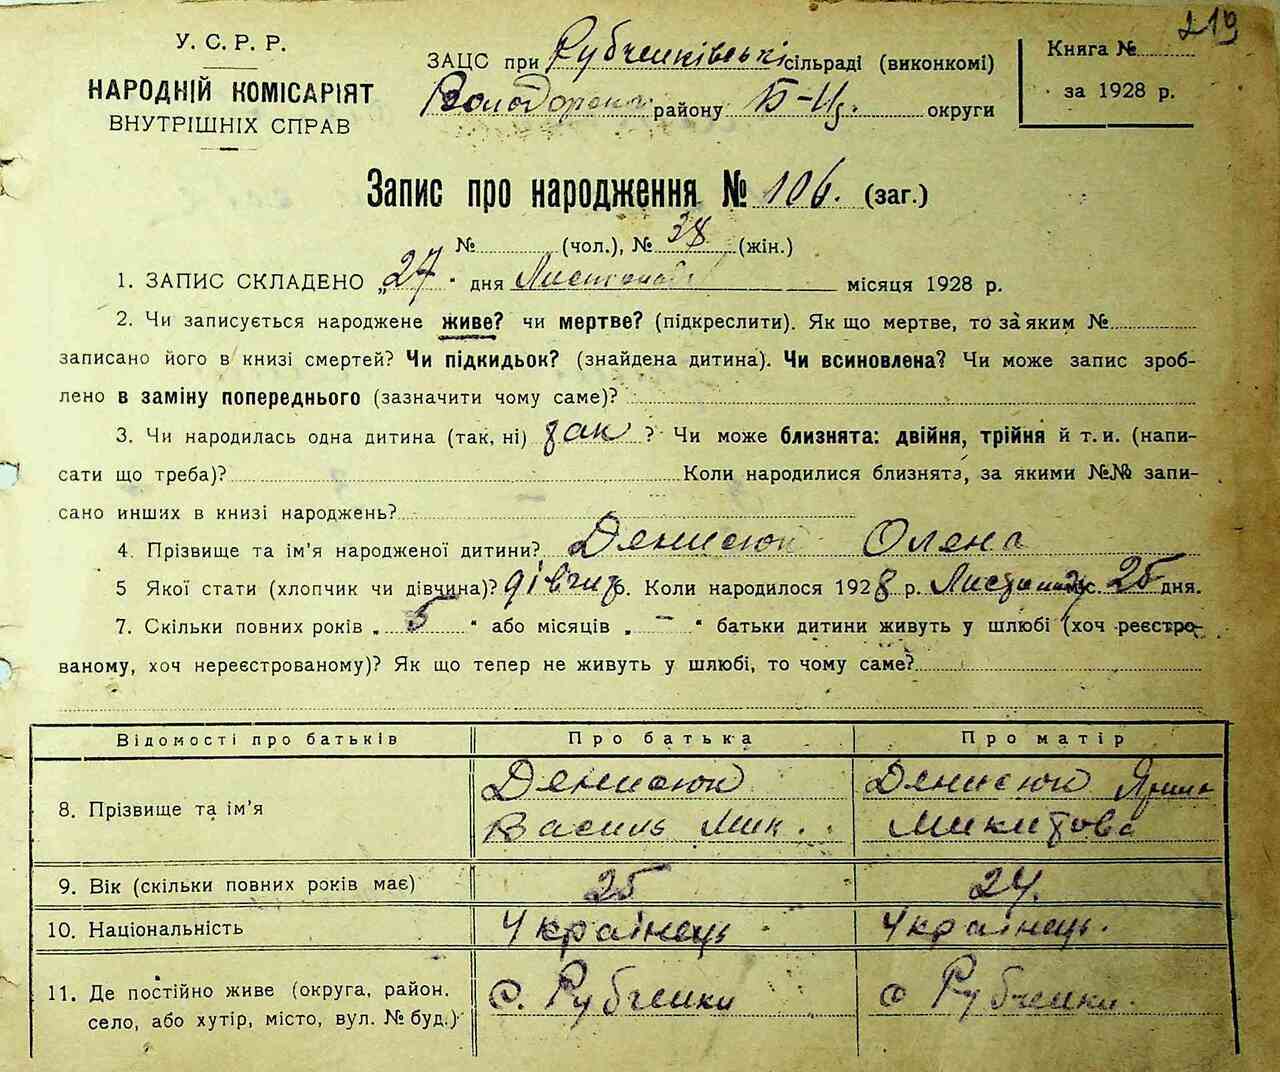 219
У. С. Р. Р.
НАРОДНІЙ КОМІСАРІЯТ
ВНУТРІШНІХ СПРАВ
ЗАЦС при Рубченківські сільраді (виконкомі)
району Б-Ц. округи
Книга №
за 1928 р.
Запис про народження № 106. (заг.)
№ (чол.), № 38 (жін.)
1. ЗАПИС СКЛАДЕНО „27" дня Листопада місяця 1928 р.
2. Чи записується народжене живе? чи мертве? (підкреслити). Як що мертве, то за яким №
записано його в книзі смертей? Чи підкидьок? (знайдена дитина). Чи всиновлена? Чи може запис зроб-
лено в заміну попереднього (зазначити чому саме)?
3. Чи народилась одна дитина (так, ні) так ? Чи може близнята: двійня, трійня й т. и. (напи-
сати що треба)? Коли народилися близнята, за якими №№ запи-
сано инших в книзі народжень?
4. Прізвище та ім'я народженої дитини? Денисюк Олена
5 Якої стати (хлопчик чи дівчина)? дівчир. Коли народилося 1928 р. Листопаду с. 25 дня.
7. Скільки повних років „ 5 " або місяців „ – " батьки дитини живуть у шлюбі (хоч реєстро-
ваному, хоч нереєстрованому)? Як що тепер не живуть у шлюбі, то чому саме?
Відомості про батьків Про батька Про матір
8. Прізвище та ім'я
Денисюк
Василь Мик.
Денисюк Ярина
Микитова
9. Вік (скільки повних років має) 25 24.
10. Національність Українець Українець.
11. Де постійно живе (округа, район.
село, або хутір, місто, вул. № буд.)
с. Рубченки
с Рубченки.